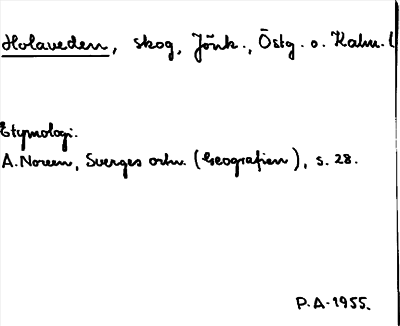 Holaveden, skog, Jönk., Östg. o. Kalm. l
Etymologi.
A. Noreen, Sverges ortn. (Geografien), s. 28.
P.A. 1955.